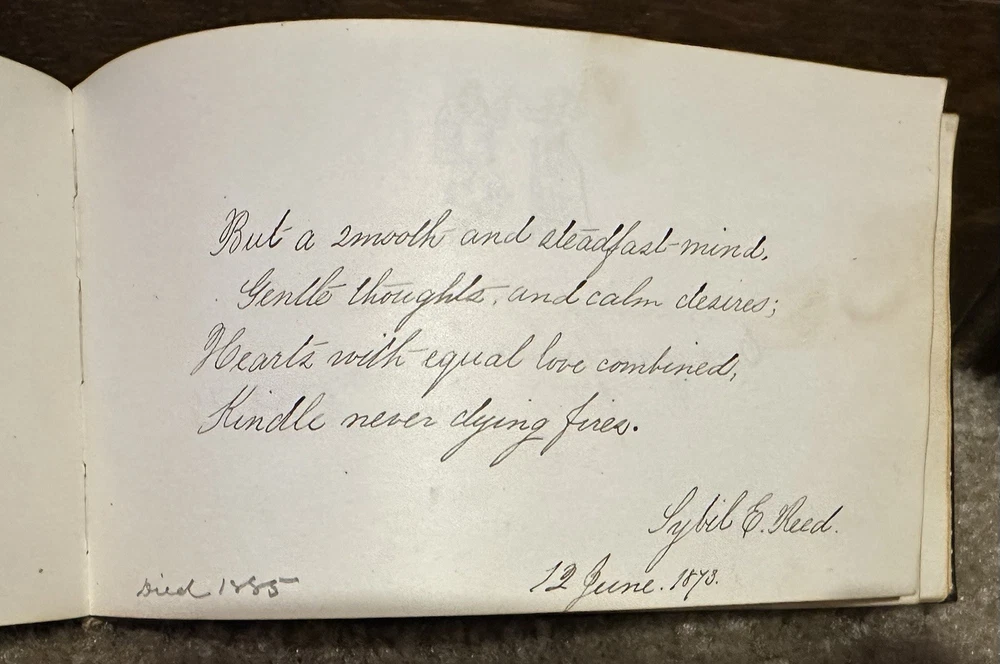 But a smooth and steadfast mind,
Gentle thoughts, and calm desires;
Hearts with equal love combined,
Kindle never dying fires.
Sybil E. Reed.
12 June. 1873.
Died 1885